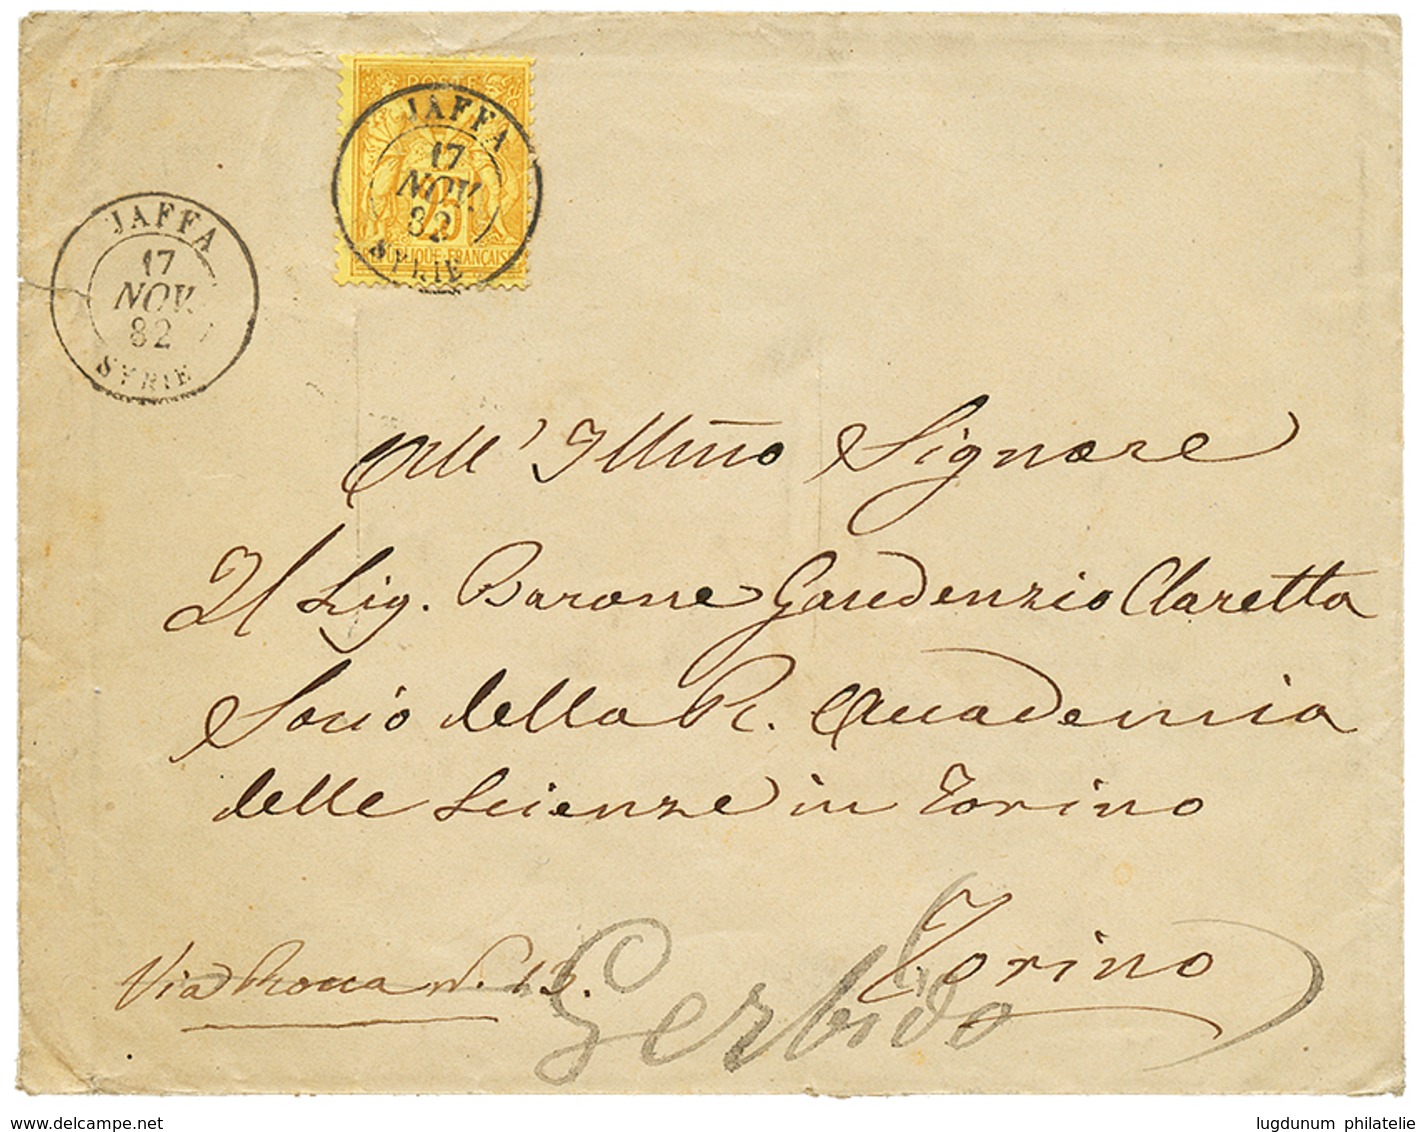 POSTE
25
REPUBLIQUE FRANÇAISE
JAFFA
17
NOV.
82
SYRIE
JAFFA
17
NOV.
82
SYRIE
All' Illmo Signore
Il Sig. Barone Gaudenzio Claretta
Socio della R. Accademia
delle Scienze in Torino
Torino
Via Rocca N. 13.
Gerbido
www.delcampe.net
lugdunum philatelie